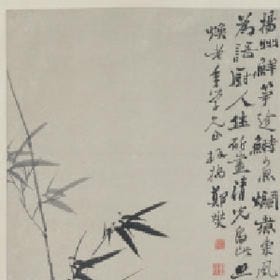 揚州鮮筍趁鰣魚爛煮春風
為語廚人休斫盡清光留此照
煥老年學兄正板橋鄭燮